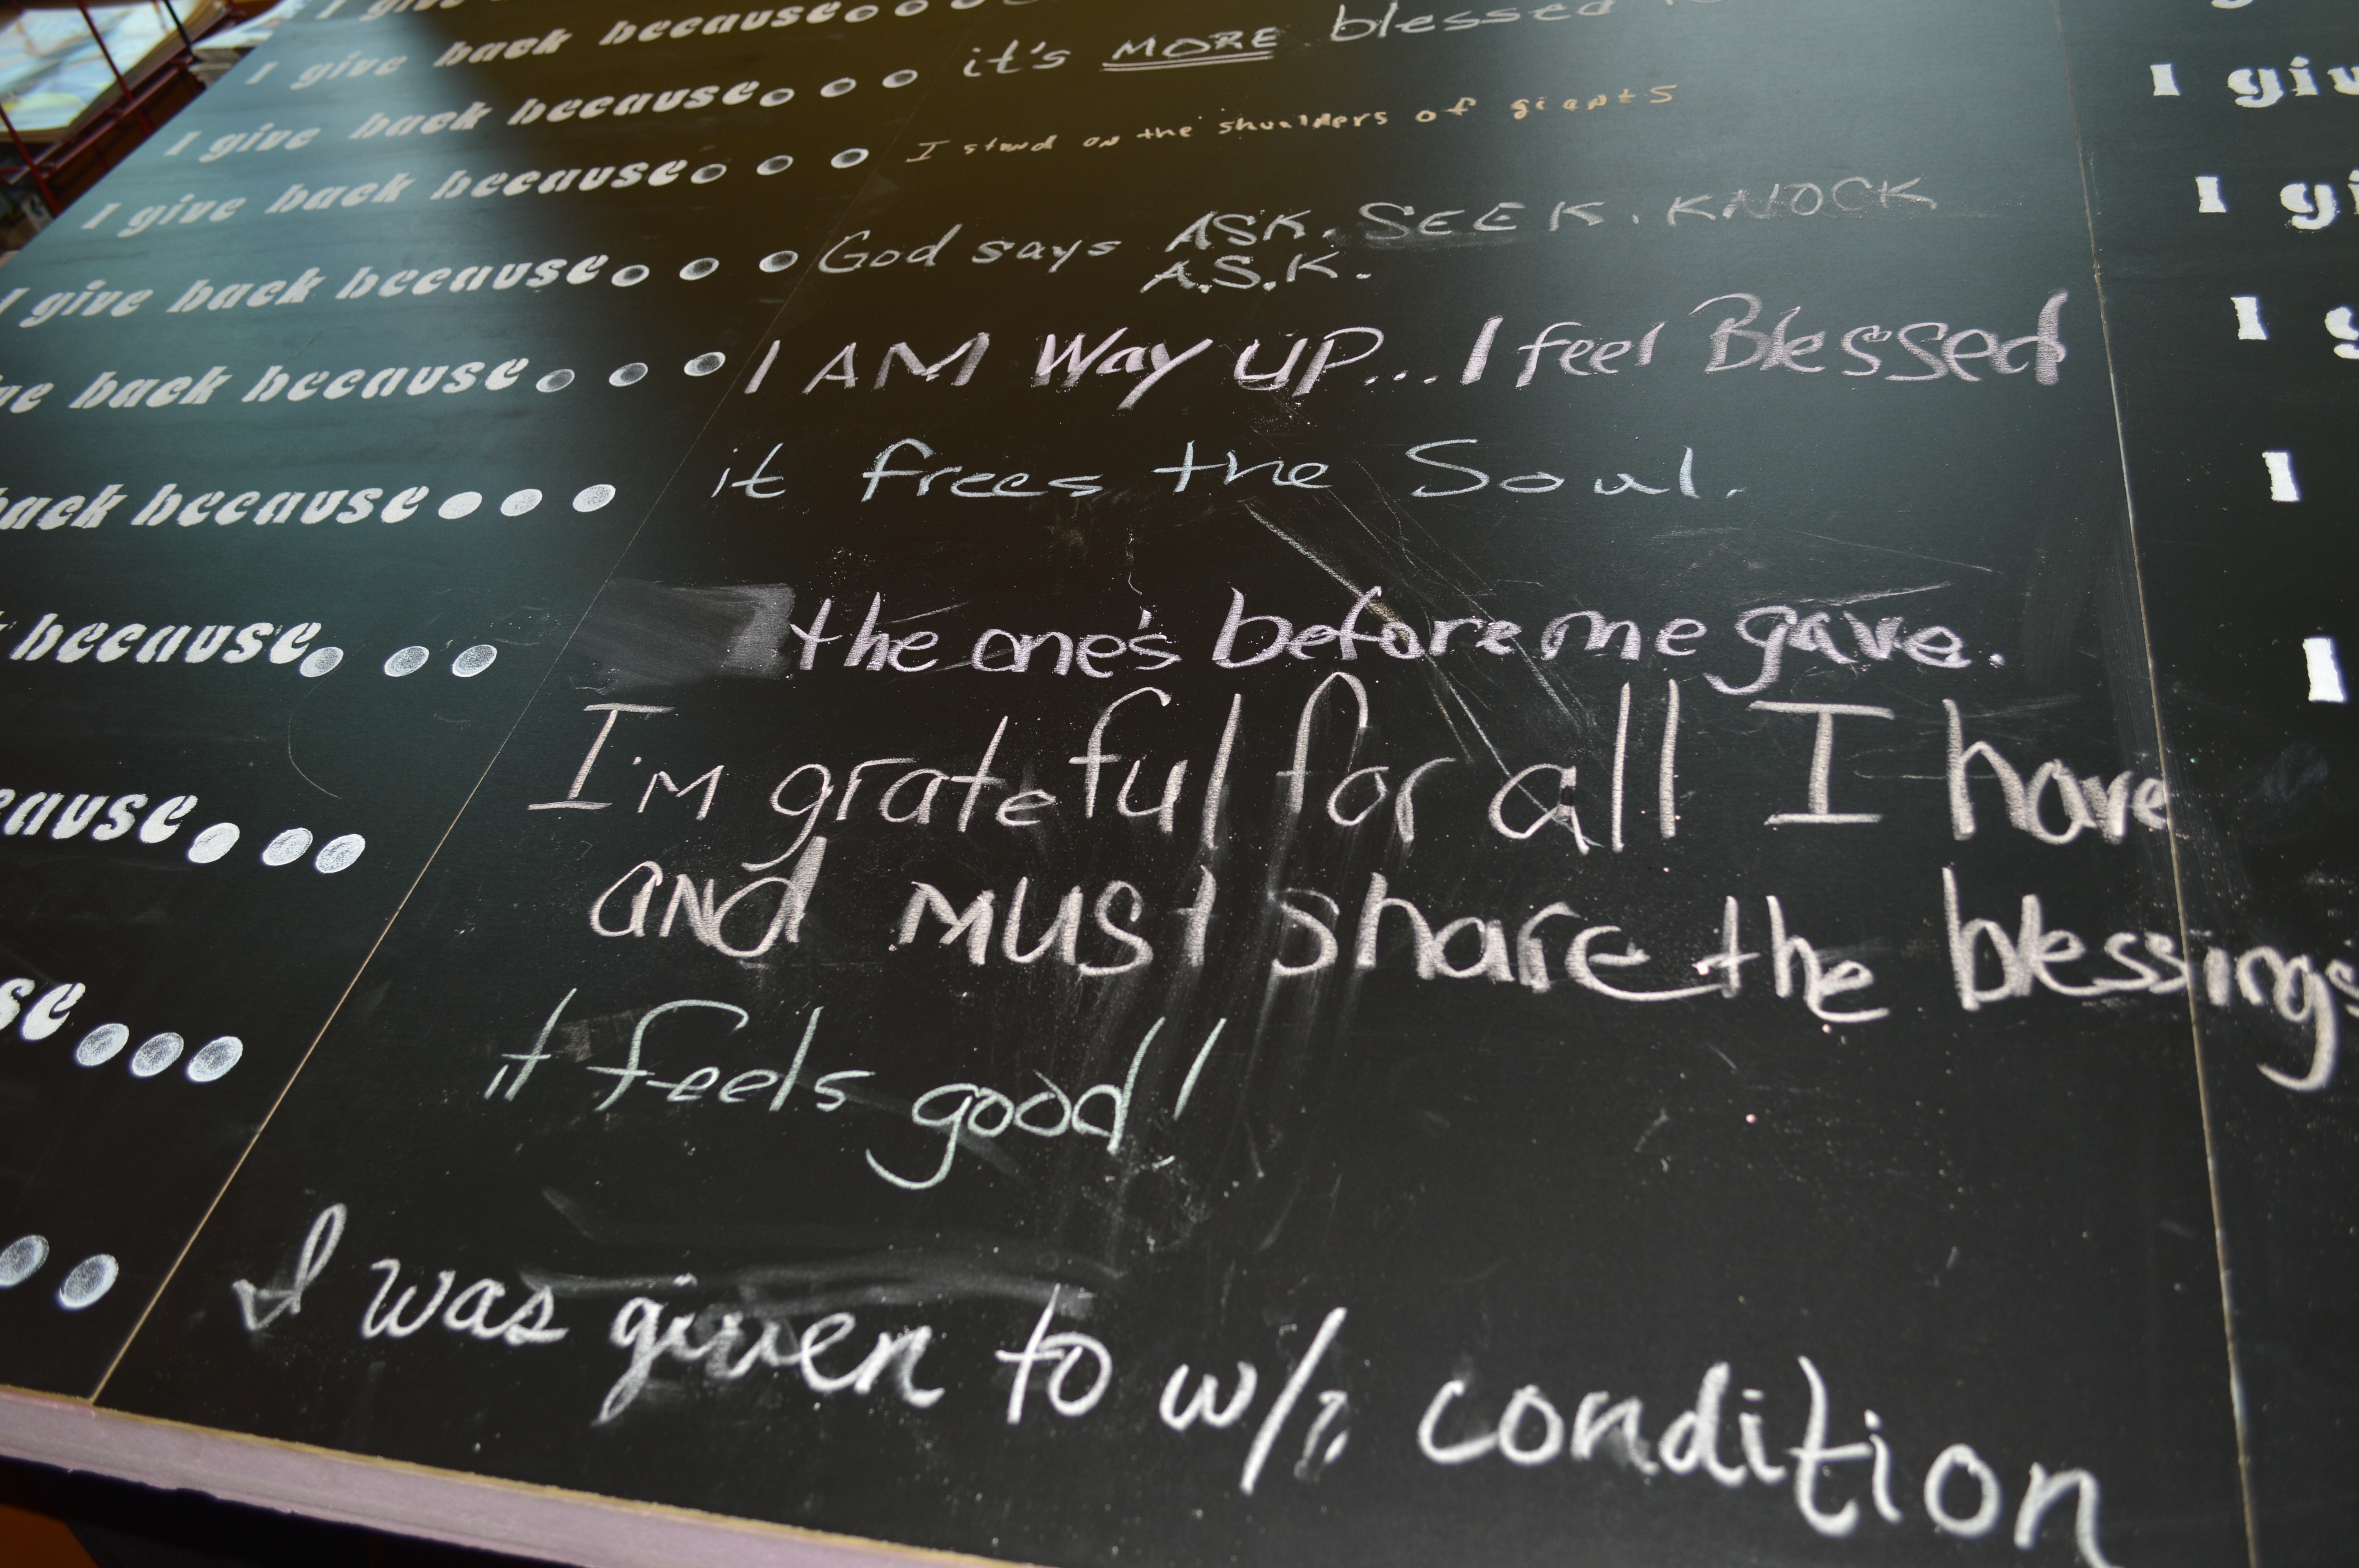 I give
I give back because... it's MORE blessed
I give back because... I stand on the shoulders of giants
I give back because... God says ASK. SEEK. KNOCK
A.S.K.
I give back because... I AM Way UP... I feel Blessed
ve back because... it frees the Soul.
back because... the one's before me gave.
because... I'm grateful for all I have
and must share the blessings
cause... it feels good!
se... I was given to w/ condition
..
I giv
I gi
I g
I
I